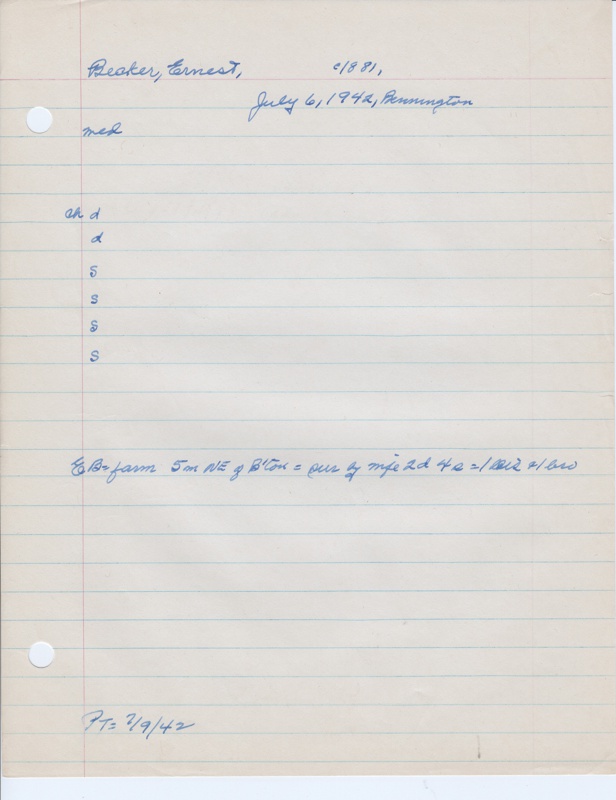 Becker, Ernest, c1881,
July 6, 1942, Bennington
med
ch d
d
S
S
S
S
EB = farm 5m NE of B'ton = sur by wife 2d 4s = 1 sis = 1 bro
PT = 7/9/42